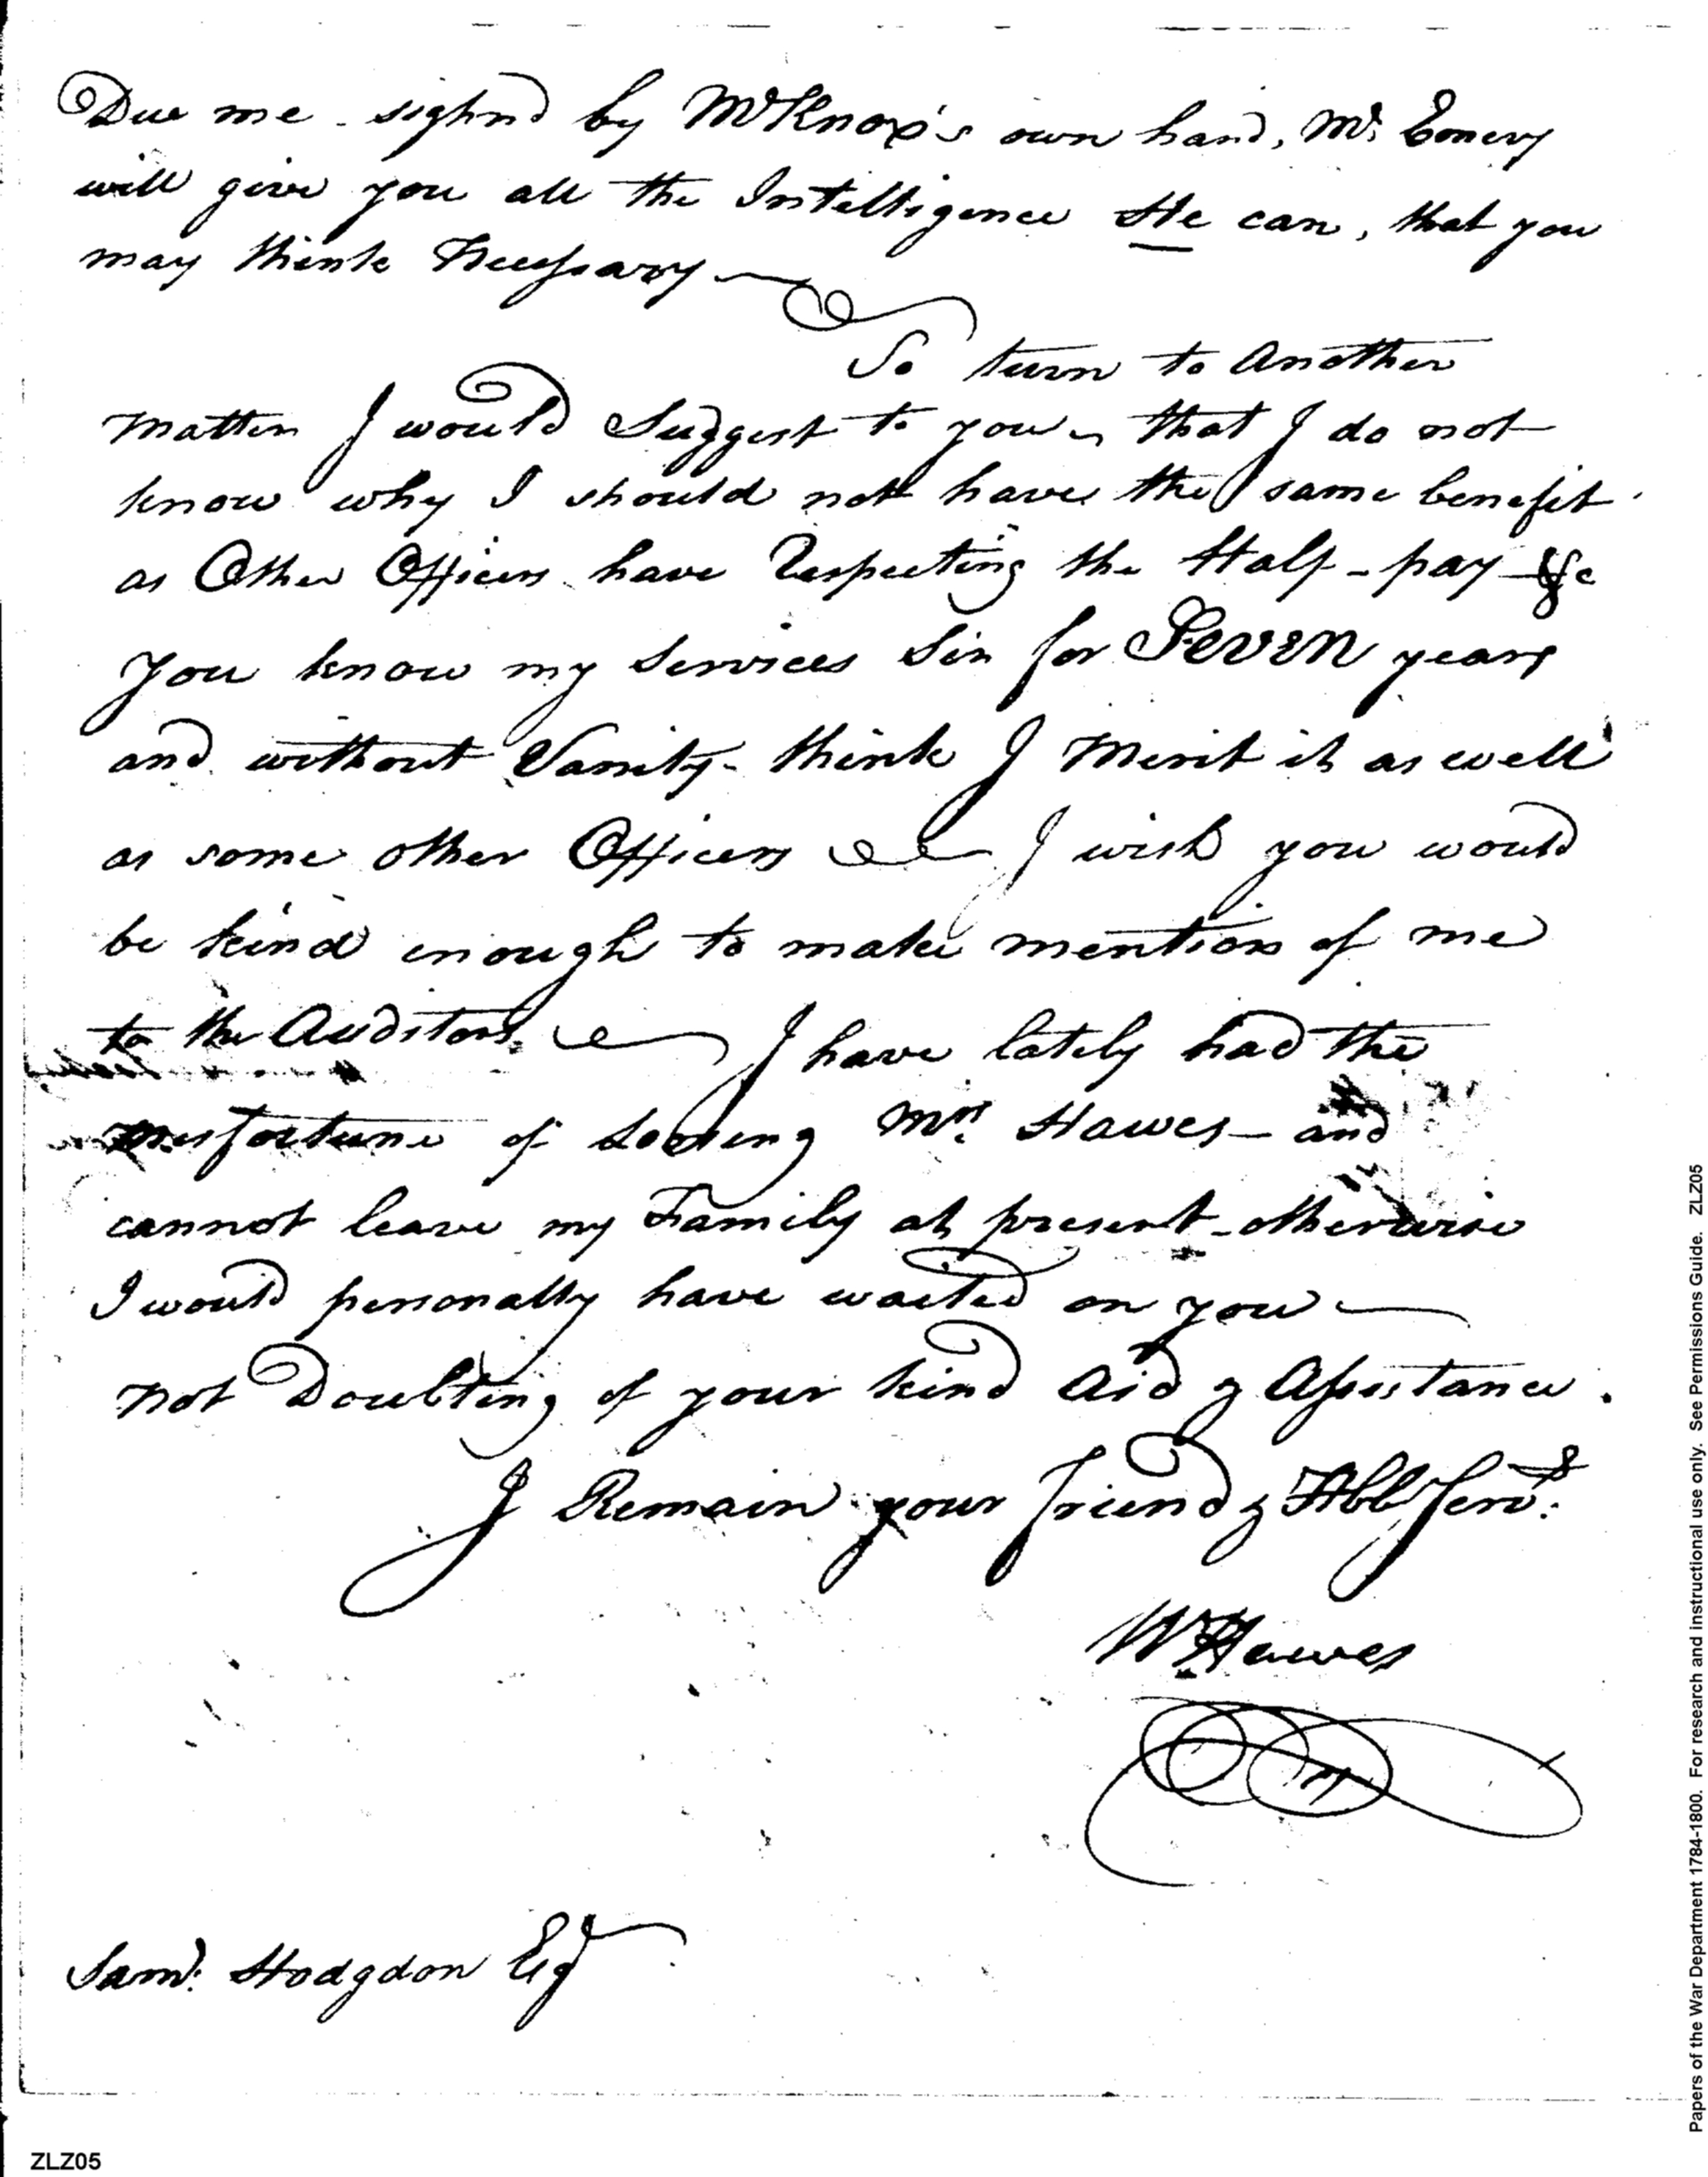 Due me - sighnd by Mr Knox's own hand, Mr. Emery
will give you all the Intelligence He can, that you
may think Necessary
To turn to Another
matter I would Suggest to you, that I do not
know why I should not have the same benefit
as Other Officers have Respecting the Half-pay &c
you know my Services Sir for Seven years
and without Vanity - think I Merit it as well
as some other Officers I wish you would
be kind enough to make mention of me
to the Auditors. I have lately had the
misfortune of Loosing Mrs. Hawes - and
cannot leave my Family at present - otherwise
I would personally have waited on you
not Doubting of your kind Aid & Assistance.
I Remain your friend & Hble Servt.
Wm Hawes
Saml. Hodgdon Esq
ZLZ05
Papers of the War Department 1784-1800. For research and instructional use only. See Permissions Guide. ZLZ05